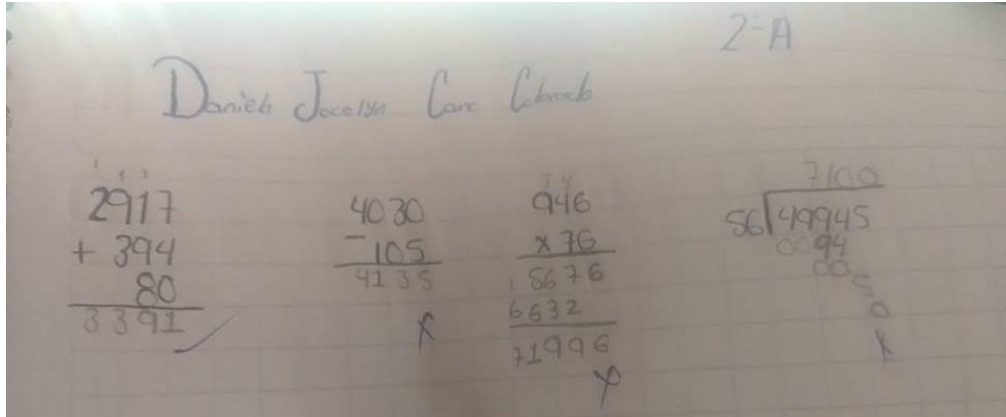 2° A
Daniela Jocelyn Cano Colorado
1 1
2917
+ 394
80
3391
4030
- 105
4135
946
x 76
5676
6632
71996
7100
56 49945
0094
00
5
0